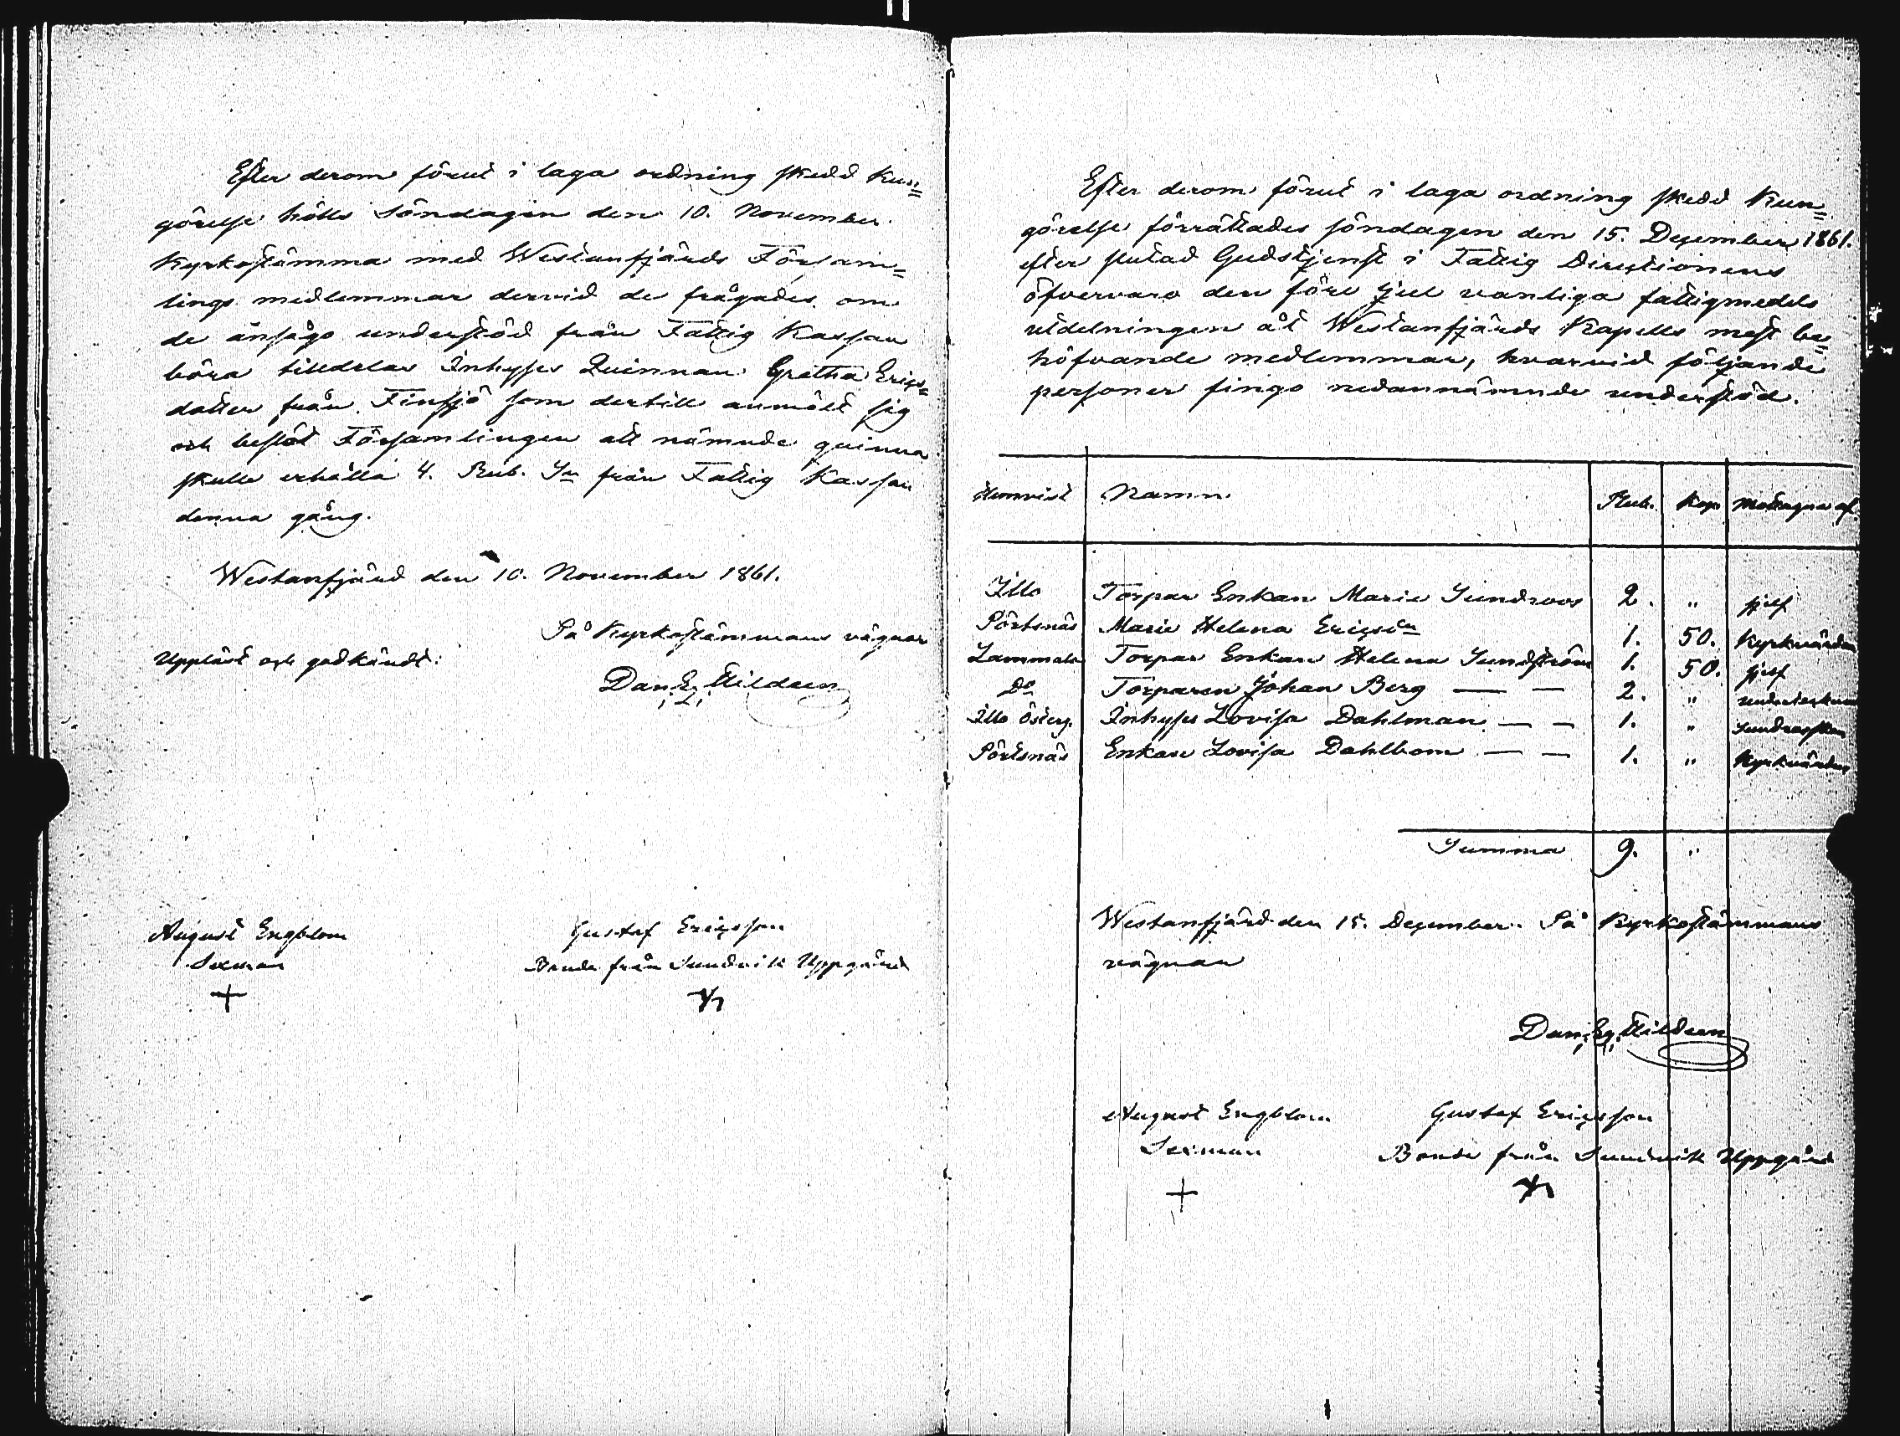 Efter derom förut i laga ordning skedd Kun=
görelse hölls Söndagen den 10. November
Kyrkostämma med Westanfjärds Försam=
lings medlemmar dervid de frågades om
de ansågo understöd från Fattig Kassan
böra tilldelas Inhyses Quinnan Gretha Erics=
dotter från Finsjö som dertill anmält sig
och beslöt Församlingen att nämnde quinna
skulle erhålla 4. Rub. Sr från Fattig Kassan
denna gång.
Westanfjärd den 10. November 1861.
På Kyrkostämmans vägnar
Uppläst och godkändt:
Dan. Eg.
August Engblom
Sexman
+
Gustaf Ericsson
Bonde från Sundvik Uppgård
Efter derom förut i laga ordning skedd Kun=
görelse förrättades söndagen den 15. December 1861.
efter slutad Gudstjenst i Fattig Directionens
öfvervaro den före jul vanliga fattigmedels
utdelningen åt Westanfjärds Kapells mest be=
höfvande medlemmar, hvarvid följande
personer fingo nedannämnde understöd.
Hemvist Namn. Rub. Kop. Mottagna af.
Illo Torpar Enkan Maria Sundroos 2. " sjelf
Pörtsnäs Maria Helena Ericsdr 1. 50. Kyrkvärden
Lammala Torpar Enkan Helena Sundström 1. 50. sjelf
Do Torparen Johan Berg — — 2. "
Illo Österg. Inhyses Lovisa Dahlman — — 1. "
Pörtsnäs Enkan Lovisa Dahlbom — — 1. " Kyrkvärden
Summa 9. "
Westanfjärd den 15. December. På Kyrkostämmans
vägnar
Dan. Eg.
August Engblom Gustaf Ericsson
Sexman Bonde från Sundvik Uppgård
+